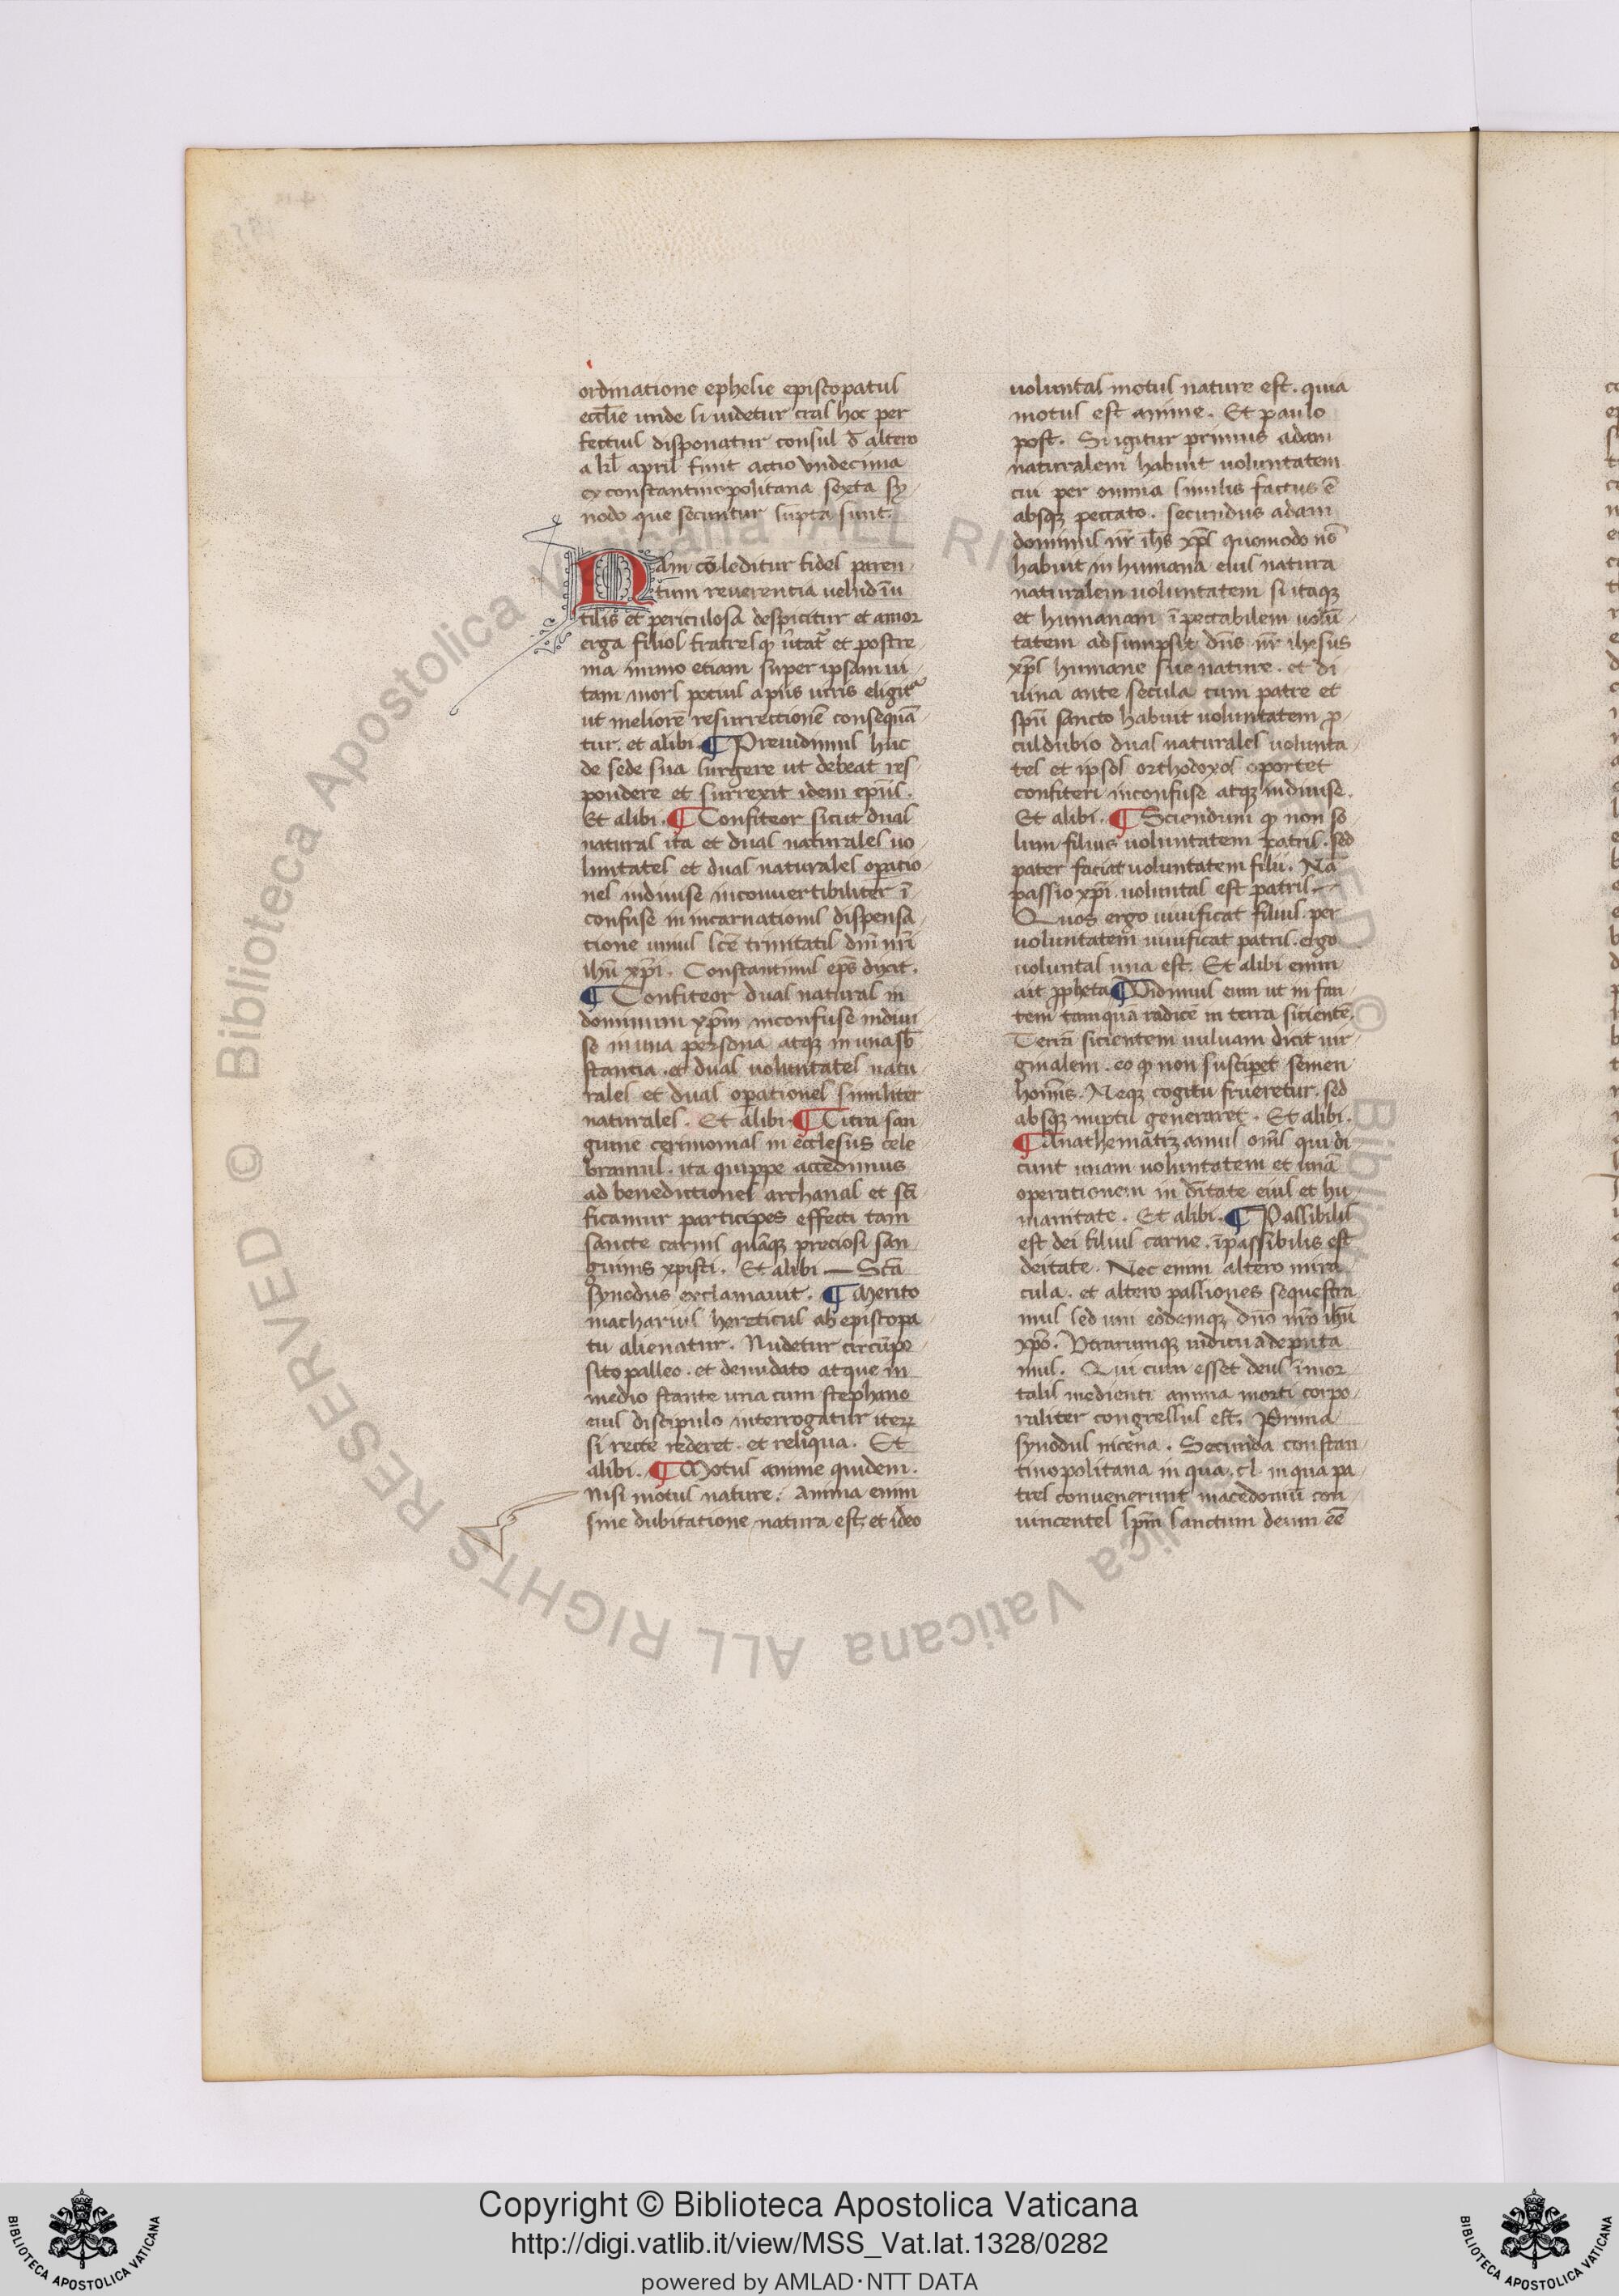 ordinatione ephesie episcopatus
eccl̄ie unde si uidetur cras hoc per
fectius disponatur consul d̄ altero
a kl̄ april fiunt actio vndecima
ex constantinopolitana sexta sy
nodo que secuntur sūpta sunt.
Nam cō leditur fides paren
tum reuerentia uelud īu
tilis et periculosa despicitur et amor
erga filios fratresqꝫ et postre
ma immo etiam super ipsam ui
tam mors potius a piis uiris eligitᷣ
ut meliorē resurrectionē consequā
tur. et alibi. ¶ Preuidimus hūc
de sede sua surgere ut debeat res
pondere et surrexit idem ep̄us.
Et alibi. ¶ Confiteor sicut duas
naturas ita et duas naturales uo
luntates et duas naturales oꝑatio
nes indiuise inconuertibiliter ī
confuse in incarnationis dispensa
tione unius sc̄e trinitatis dn̄i nr̄i
ihū xp̄i. Constantinus ep̄s dixit.
¶ Confiteor duas naturas in
dominum xp̄m inconfuse indiui
se in una persona atqꝫ in una sb̄
stantia. et duas uoluntates natu
rales et duas oꝑationes similiter
naturales. Et alibi. ¶ Citra san
guine cerimonias in ecclesiis cele
bramus. ita quippe accedimus
ad benedictiones archanas et sc̄i
ficamur participes effecti tam
sancte carnis quāqꝫ preciosi san
guinis xpisti. Et alibi — Sc̄ā
synodus exclamauit. ¶ Merito
macharius hereticus ab episcopa
tu alienatur. Nudetur circūpo
sito palleo. et denudato atque in
medio stante una cum stephano
eius discipulo interrogatur iteꝝ
si recte rederet. et reliqua. Et
alibi. ¶ Motus anime quidem.
nisi motus nature. Anima enim
sine dubitatione natura est. et ideo
uoluntas motus nature est. quia
motus est anime. Et paulo
post. Si igitur primus adam
naturalem habuit uoluntatem
cui per omnia similis factus ē
absqꝫ peccato. secundus adam
dominus nr̄ ih̄s xp̄s quomodo nō
habuit in humana eius natura
naturalem uoluntatem si itaqꝫ
et humanam īpeccabilem uolū
tatem adsumpsit dn̄s nr̄ ihesus
xp̄s humane sue nature. et di
uina ante secula cum patre et
spū sancto habuit uoluntatem ꝓ
cul dubio duas naturales uolunta
tes et ipsos orthodoxos oportet
confiteri inconfuse atqꝫ indiuise.
Et alibi. ¶ Sciendum ꝙ non so
lum filius uoluntatem patris. sed
pater faciat uoluntatem filii. Nā
passio xp̄i. uoluntas est patris —
Quos ergo uiuificat filius. per
uoluntatem uiuificat patris. ergo
uoluntas una est. Et alibi enim
ait ꝓpheta ¶ Uidimus eum ut infan
tem tamquā radicē in terra sicientē.
Terrā sicientem uuluam dicit uir
ginalem. eo ꝙ non susciꝑet semen
homīs. Neqꝫ cogitu frueretur. sed
absqꝫ nuptu generaret. Et alibi.
¶ Anathematizamus om̄s qui di
cunt unam uoluntatem et unā
operationem in dītate eius et hu
manitate. Et alibi. ¶ Passibilis
est dei filius carne. īpassibilis est
deitate. Nec enim altero mira
cula. et altero passiones sequestra
mus sed uni eodemqꝫ dn̄o nr̄o ihū
xp̄o. Utrarumqꝫ indicua deputa
mus. Qui cum esset deus īmor
talis medienti anima morti corpo
raliter congressus est. Prima
synodus nicena. Secunda constan
tinopolitana in qua. cl. in qua pa
tres conuenerunt macedoniū con
uincentes sp̄m sanctum deum eē
Copyright © Biblioteca Apostolica Vaticana
http://digi.vatlib.it/view/MSS_Vat.lat.1328/0282
powered by AMLAD·NTT DATA
BIBLIOTECA APOSTOLICA VATICANA
BIBLIOTECA APOSTOLICA VATICANA